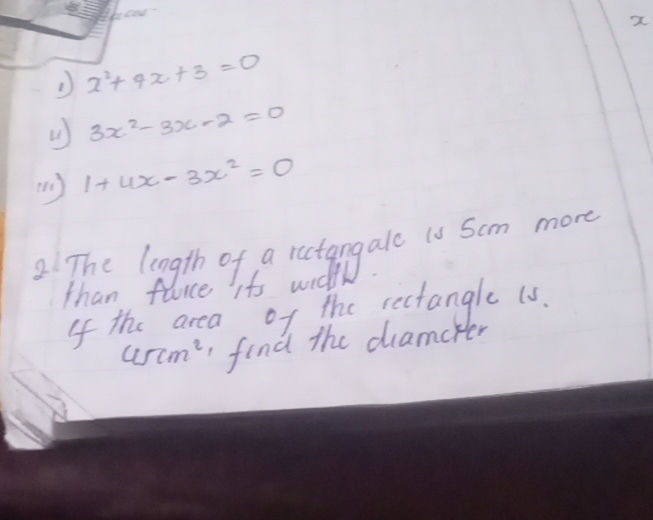 x
i) x²+4x+3 = 0
ii) 3x²-3x-2 = 0
iii) 1+4x-3x² = 0
2. The length of a rectangale is 5cm more
than twice its width.
If the area of the rectangle is.
45cm², find the diameter